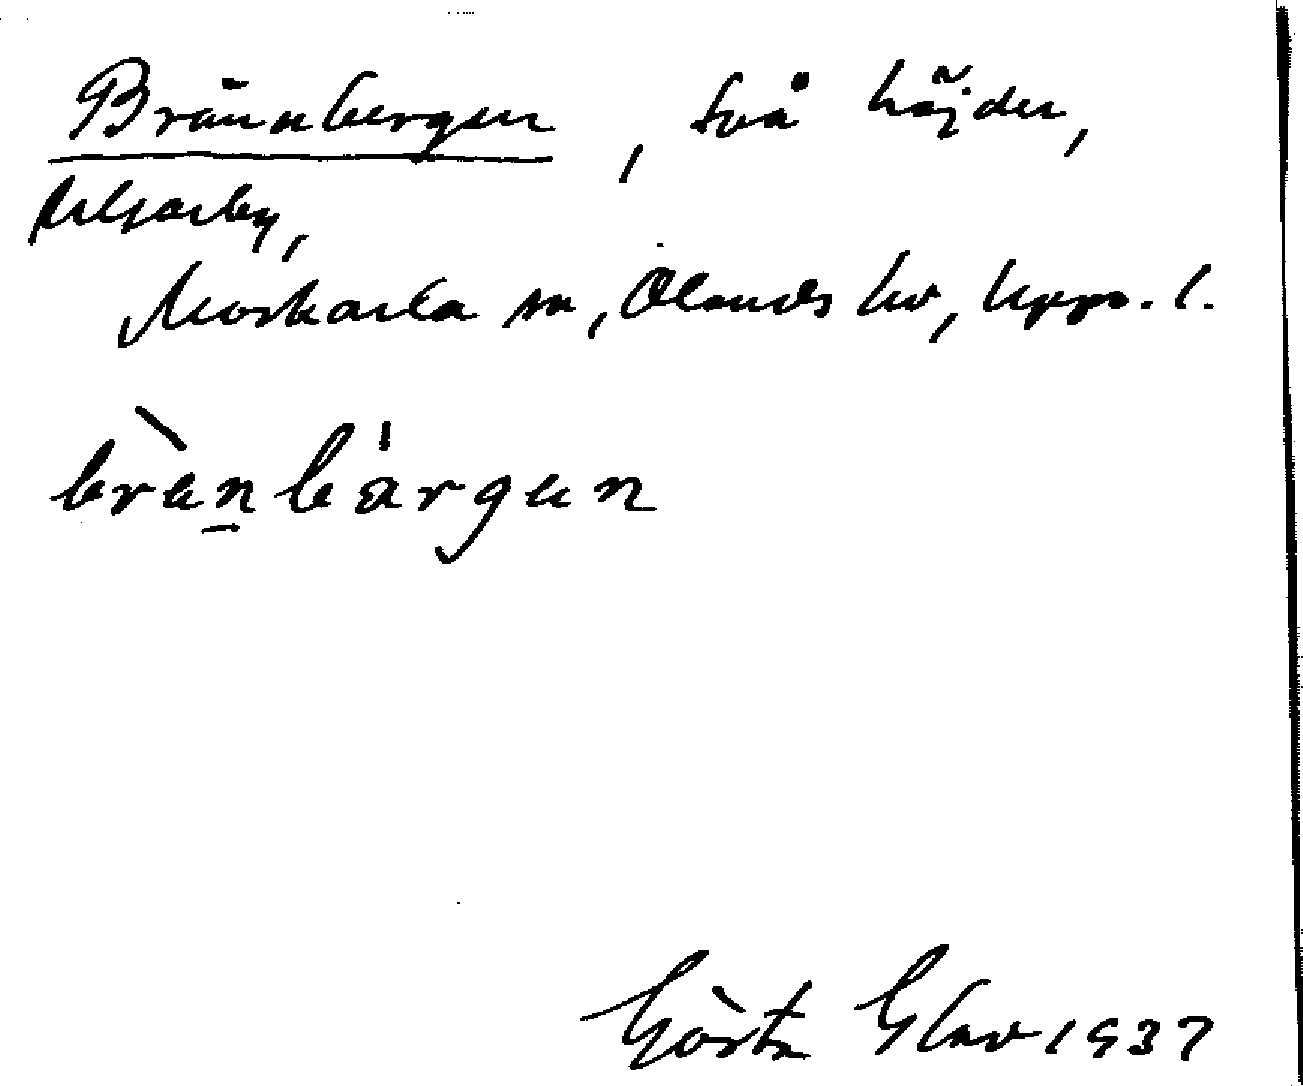 Brännbergen, två höjder,
Morkarla sn, Olands hd, Upps. l.
brànbärgan
Gösta Elav 1937